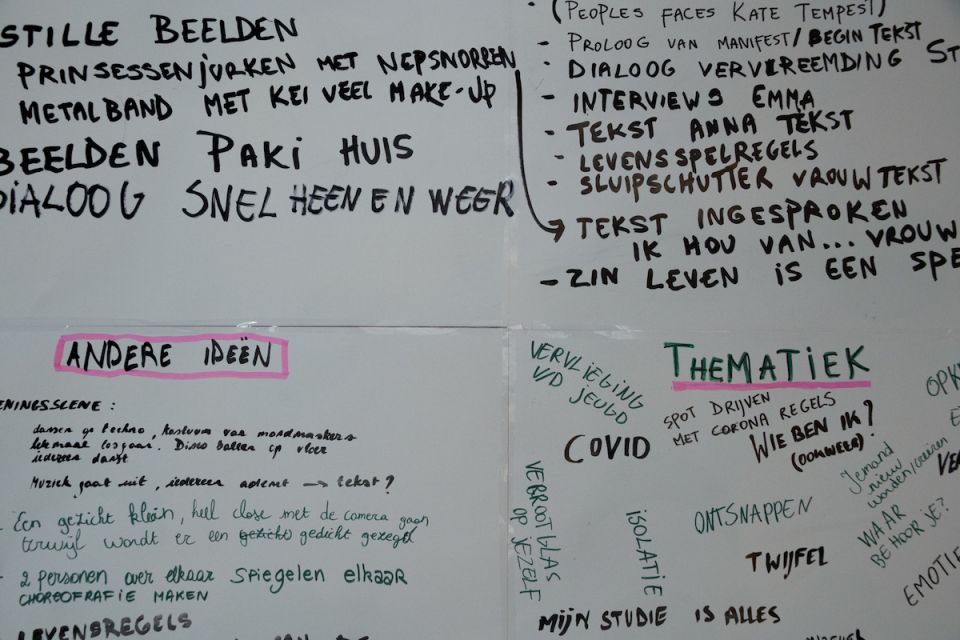 STILLE BEELDEN
PRINSESSENJURKEN MET NEPSNORREN
METALBAND MET KEI VEEL MAKE-UP
BEELDEN PAKI HUIS
DIALOOG SNEL HEEN EN WEER
(PEOPLES FACES KATE TEMPEST)
- PROLOOG VAN MANIFEST/BEGIN TEKST
- DIALOOG VERVREEMDING ST
- INTERVIEWS EMMA
- TEKST ANNA TEKST
- LEVENSSPELREGELS
- SLUIPSCHUTTER VROUW TEKST
→ TEKST INGESPROKEN
IK HOU VAN... VROUW
- ZIN LEVEN IS EEN SPE
ANDERE IDEËN
ENINGSSCENE:
dansen op techno, kostuum van mondmaskers
helemaal losgaan. Disco ballen op vloer
iedereen danst
Muziek gaat uit, iedereen ademt → tekst?
- Een gezicht klein, heel close met de camera gaan
terwijl wordt er een gedicht gezegd
- 2 personen over elkaar spiegelen elkaar
CHOREOGRAFIE MAKEN
LEVENSREGELS
THEMATIEK
VERVLIEGING
V/D JEUGD
SPOT DRIJVEN
MET CORONA REGELS
COVID
WIE BEN IK?
(OOHWEER)
OPK
Jemand
nieuw
worden/creëren
VERGROOTGLAS
OP JEZELF
ISOLATIE
ONTSNAPPEN
WAAR
BEHOOR JE?
TWIJFEL
EMOTIE
MIJN STUDIE IS ALLES